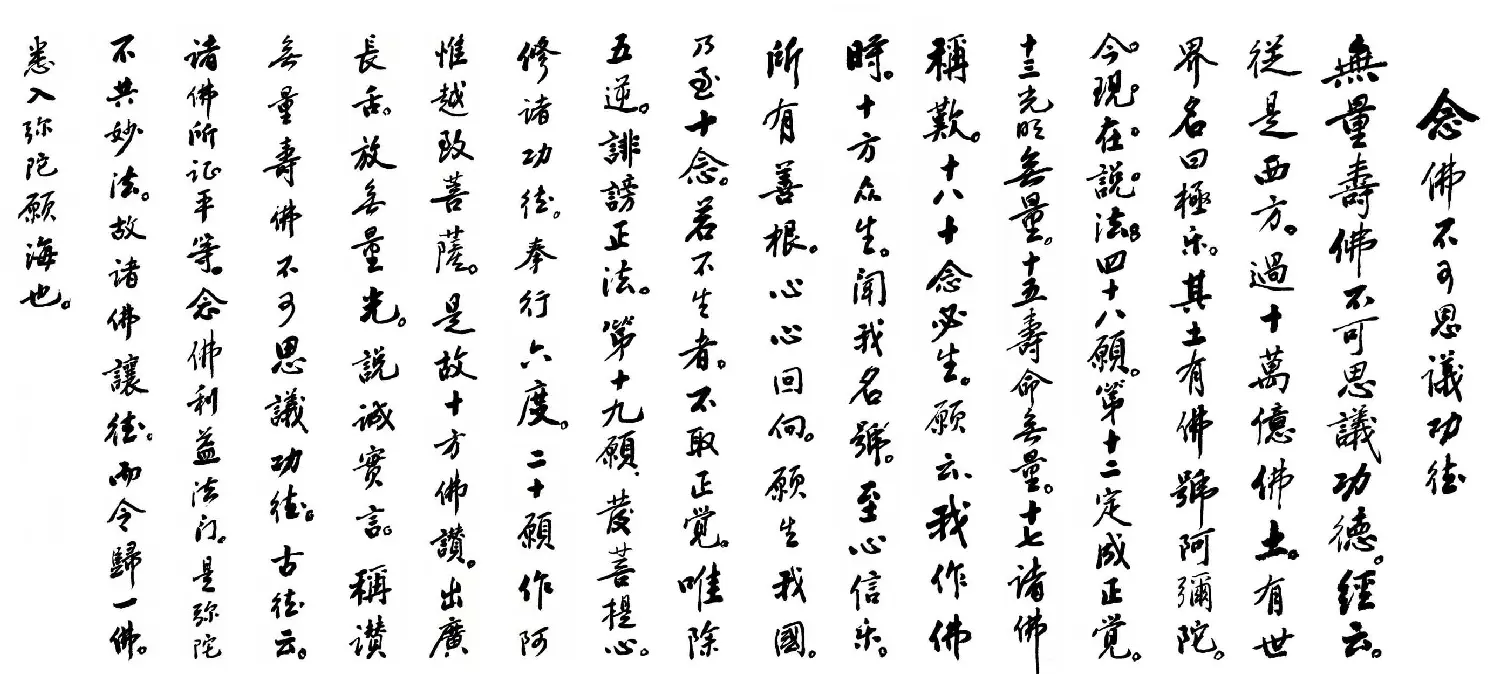 念佛不可思議功德
無量壽佛不可思議功德。經云。
從是西方。過十萬億佛土。有世
界名曰極乐。其土有佛號阿彌陀。
今。現。在。說。法。四十八願。第十二定成正覚。
十三光明無量。十五壽命無量。十七諸佛
稱歎。十八十念必生。願云。我作佛
時。十方众生。聞我名號。至心信乐。
所有善根。心心回向。願生我國。
乃至十念。若不生者。不取正覚。唯除
五逆。誹謗正法。第十九願、發菩提心。
修诸功德。奉行六度。二十願作阿
惟越致菩薩。是故十方佛讃。出廣
長舌。放無量光。説诚實言。稱讃
無量壽佛不可思議功德。古德云。
诸佛所证平等。念佛利益法门。是弥陀
不共妙法。故诸佛讓德。而令歸一佛。
悉入弥陀願海也。